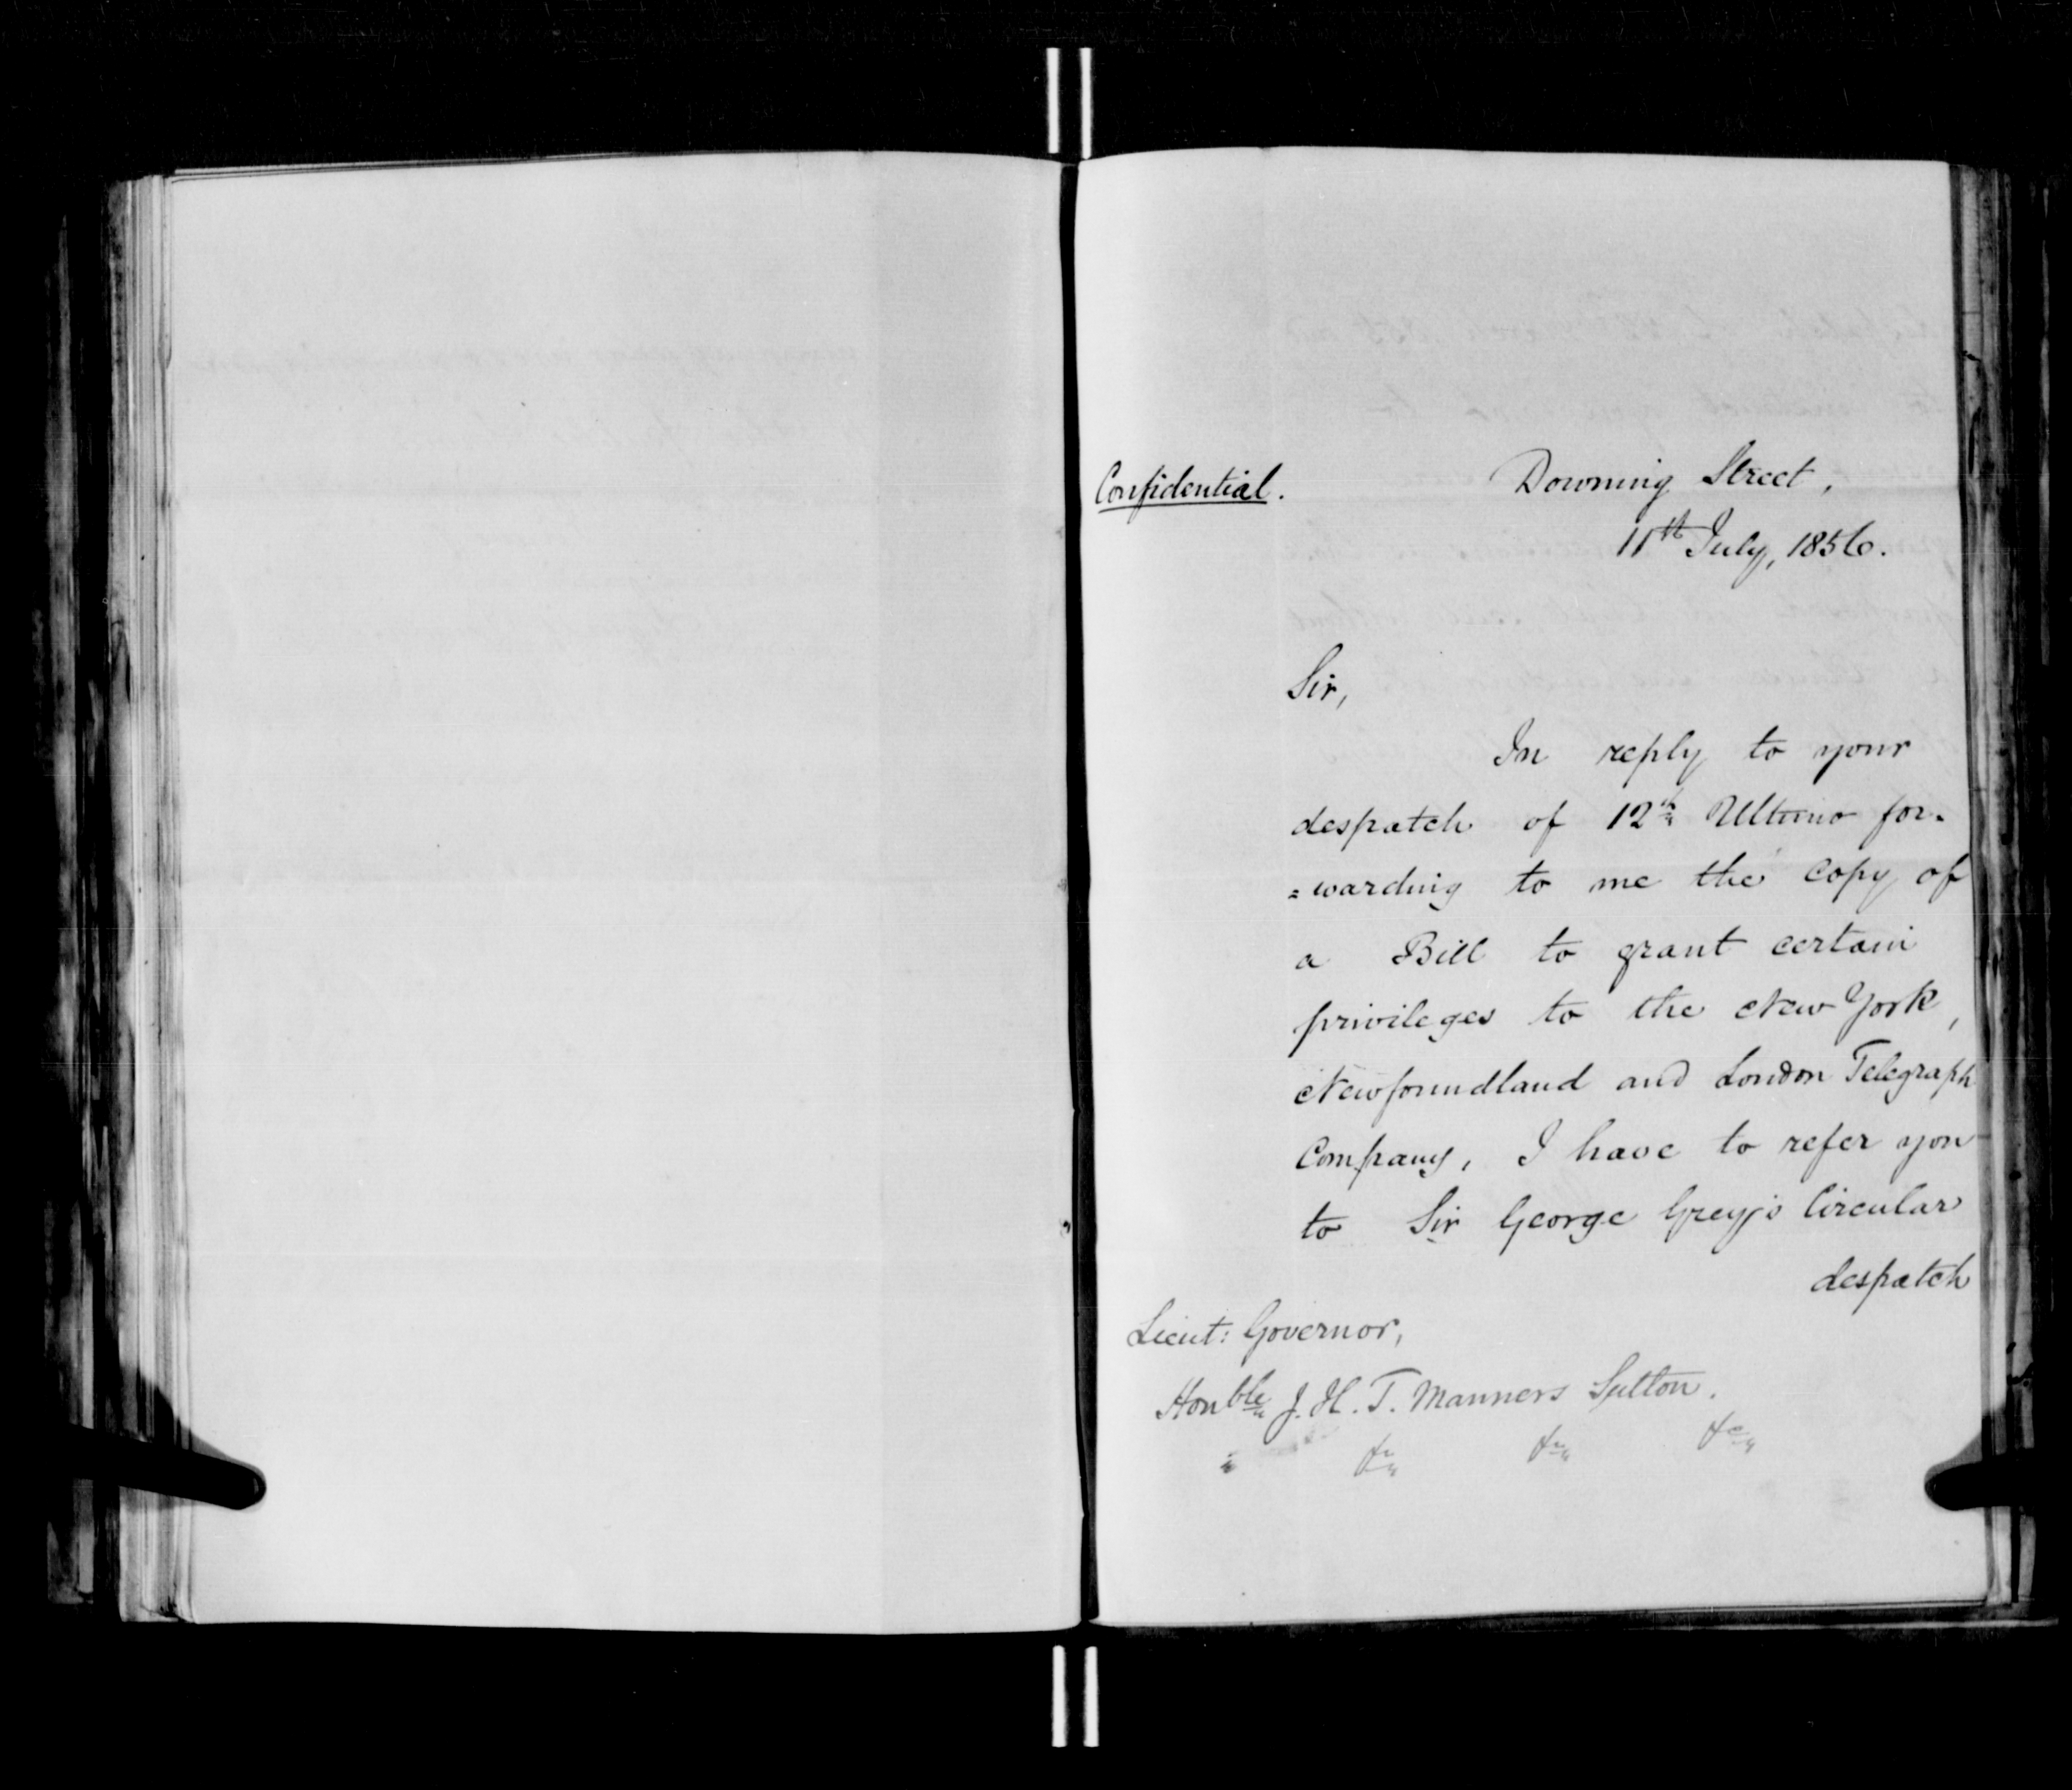 Confidential.
Downing Street,
11th July, 1856.
Sir,
In reply to your
despatch of 12th Ultimo for-
=warding to me the copy of
a Bill to grant certain
privileges to the New York,
Newfoundland and London Telegraph
Company, I have to refer you
to Sir George Grey's Circular
despatch
Lieut: Governor,
Honble J. H. T. Manners Sutton.
&c &c &c